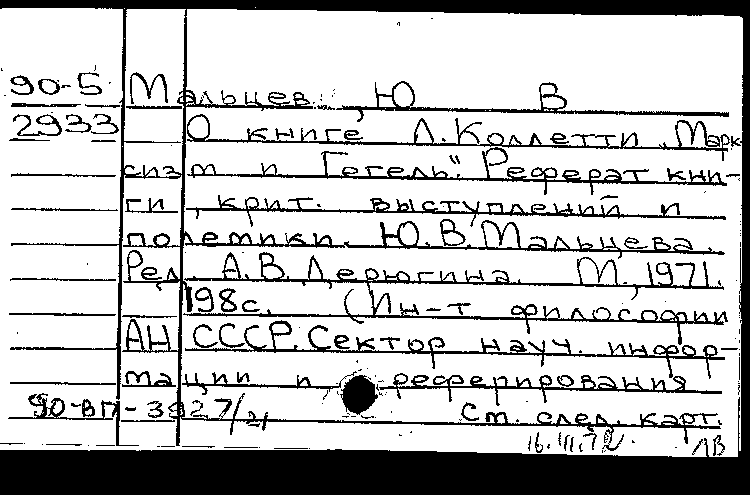 90-5 Мальцев, Ю В
2933 О книге Л.Коллетти „Марк-
сизм и Гегель". Реферат кни-
ги, крит. выступлений и
полемики. Ю.В.Мальцева.
Ред. А.В.Дерюгина. М., 1971.
198с. (Ин-т философии
АН СССР. Сектор науч. инфор-
мации и реферирования
90-ВП-3927/21 См. след. карт.
16.III.72. ЛВ